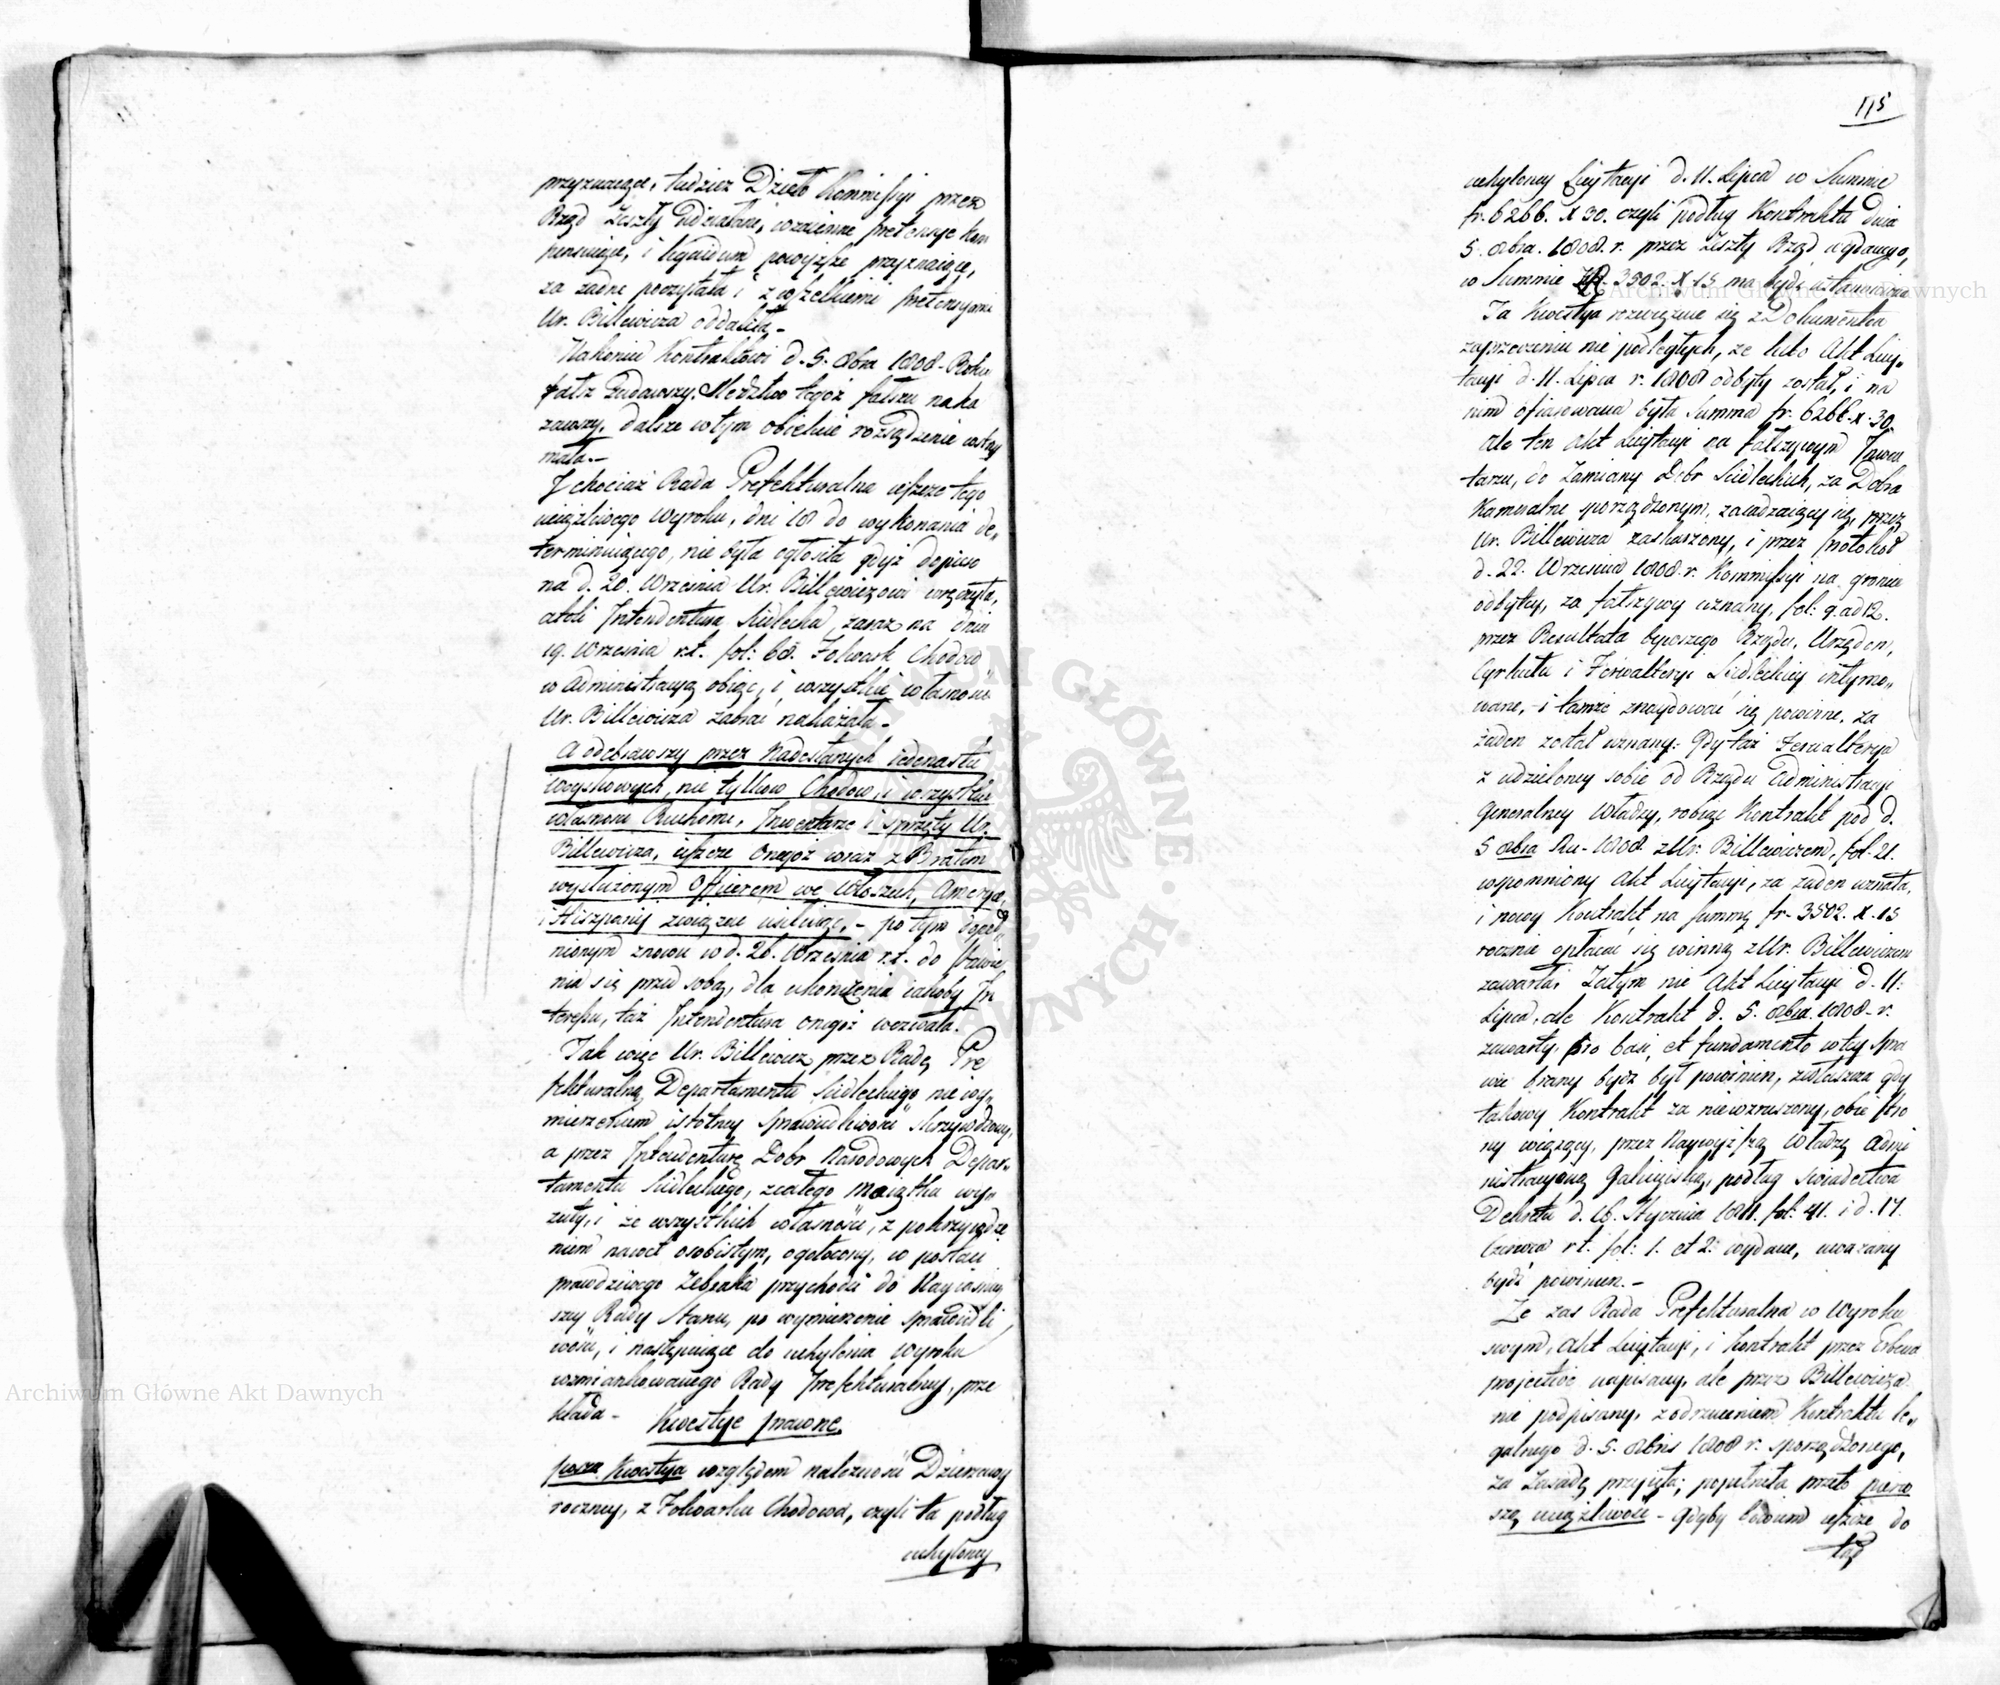 przyznaiące, tudzież Dzieło Kommissyi przez
Rząd Zeszły Zdziałane, wzaiemne pretensye kom
pensuiące, i liquidum powyższe przyznaiące,
za żadne poczytała i z wszelkiemi pretensyami
Ur. Billewicza oddaliła,-
Nakoniec Kontraktowi d. 5. 8bra 1808. Roku
fałsz Zadawszy. Śledztwo tegoż fałszu naka
zawszy, dalsze wtym obiekcie rozsądzenie wstrzy
mała.-
I chociaż Rada Prefekturalna ieszcze tego
uciążliwego Wyroku, dni 18 do wykonania de„
terminuiącego, nie była ogłosiła gdyż dopiero
na d. 20. Września Ur. Billewiczowi wręczyła,
atoli Intendentura Siedlecka, zaraz na dniu
19. Września r.t. fol: 68. Folwark Chodow
w administracyą obiąć, i wszystkie własności
Ur. Billewicza zabrać nakazała.-
A odebrawszy przez Nadesłanych iedenastu
woyskowych, nie tylkow Chodow, i wszystkie
własności Ruchome, Inwentarze i sprzęty Ur.
Billewicza, ieszcze onegoż wraz z Bratem
wysłużonym Officerem we Włoszech, Ameryce,
i Hiszpanij związać usiłuiąc,- po tym dopeł„
nionym znowu w d. 26. Września r.t. do stawie
nia się przed sobą, dla ukończenia iakoby In
teressu, taż Intendentura onegoż wezwała.
Tak więc Ur. Billewicz przez Radę Pre
fekturalną Departamentu Siedleckiego niewy„
mierzeniem istotney Sprawiedliwości Skrzywdzony,
a przez Intendenturę Dobr Narodowych Depar„
tamentu Siedleckiego, zcałego maiątku wy„
zuty, i ze wszystkich własności, z pokrzywdze
niem nawet osobistym, ogołocony, w postaci
prawdziwego Żebraka przychodzi do Nayiaśniey
szey Rady Stanu, po wymierzenie sprawiedli
wości, i następuiące do uchylenia Wyroku
wzmiankowanego Rady prefekturalney, prze
kłada-
Kwestye prawne.
pierw. Kwestya względem należności Dzierzawy
roczney, z Folwarku Chodowa, czyli ta podług
uchyloney
115
uchyloney Licytacyi d. 11. Lipca w Summie
fr. 6266. x 30. czyli podług Kontraktu dnia
5. 8bra. 1808. r. przez Zeszły Rząd wydanego,
w Summie 3502. x 15 ma bydź ustanowiona
Ta Kwestya rozwiązuie się z Dokumentu
zaprzeczeniu nie podległych, że lubo Akt Licy„
tacyi d. 11. Lipca r. 1808 odbyty został, i na
nim ofiarowana była Summa fr. 6266. x. 30.
ale ten Akt Licytacyi na fałszywym Inwen
tarzu, do Zamiany Dobr Siedleckich, za Dobra
Kameralne sporządzonym, zasadzaiący się, przez
Ur. Billewicza zaskarżony, i przez protokoł
d. 22. Września 1808. r. Kommissyi na gruncie
odbytey, za fałszywy uznany, fol: 9. ad 12.
przez Resultata bywszego Rządu, Urzędow,
Cyrkułu i Ferwalteryi Siedleckiey intymo„
wane, i tamże znaydować się powinne, za
żaden został uznany: Gdy taż Ferwalterya
z udzieloney sobie od Rządu Administracyi
Generalney Władzy, robiąc Kontrakt pod d.
5 8bra Ru- 1808. z Ur. Billewiczem, fol. 21.
wspomniony Akt Licytacyi, za żaden uznała,
i nowy Kontrakt na summę fr. 3502. x. 15
rocznie opłacać się winną z Ur. Billewiczem
zawarła, Zatym nie Akt Licytacyi d. 11:
Lipca, ale Kontrakt d. 5. 8bra. 1808. r.
zawarty, pro basi et fundamento wtey spra
wie brany bydź był powinien, zwłaszcza gdy
takowy Kontrakt za niewzruszony, obie stro
ny wiążący, przez Naywyższą Władzę Admi
nistracyiną Galicyiską, podług świadectwa
Dekretu d. 16. Stycznia 1811. fol: 41. i d. 17.
Czerwca r t. fol: 1. et 2: wydane, uważany
bydź powinien.-
Że zas Rada Prefekturalna w Wyroku
swym, Akt Licytacyi, i Kontrakt przez
projective napisany, ale przez Billewicza
nie podpisany, z odrzuceniem Kontraktu le„
galnego d. 5. 8bris 1808 r. sporządzonego,
za Zasadę przyięła; popełniła przeto pierw
szą uciążliwość - Gdyby bowiem ieszcze do
tąd